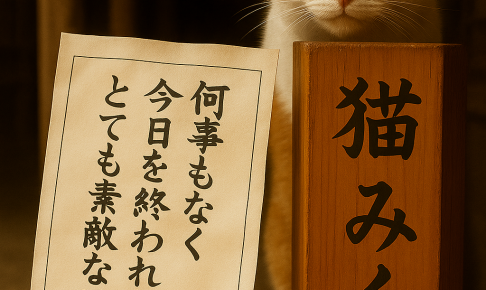 猫みく
何事もなく
今日を終われ
とても素敵な